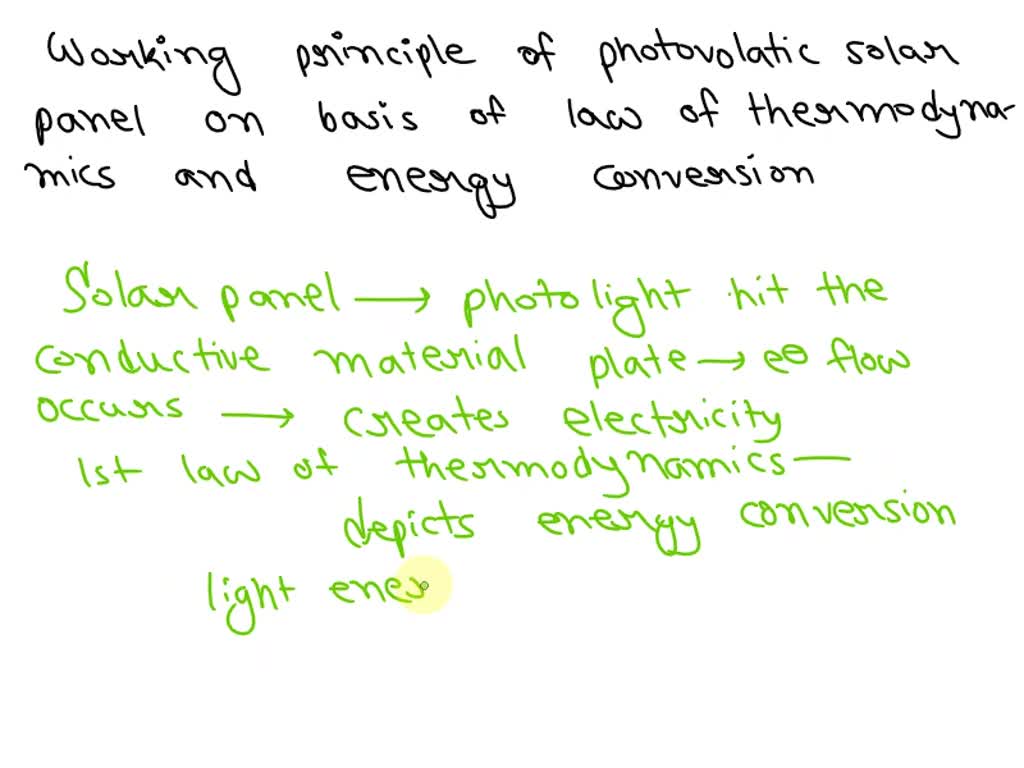 Working principle of photovolatic solar
panel on basis of law of thermodyna-
mics and energy conversion
Solar panel → photolight hit the
conductive material plate → e⊖ flow
occurs → creates electricity
1st law of thermodynamics —
depicts energy conversion
light ener